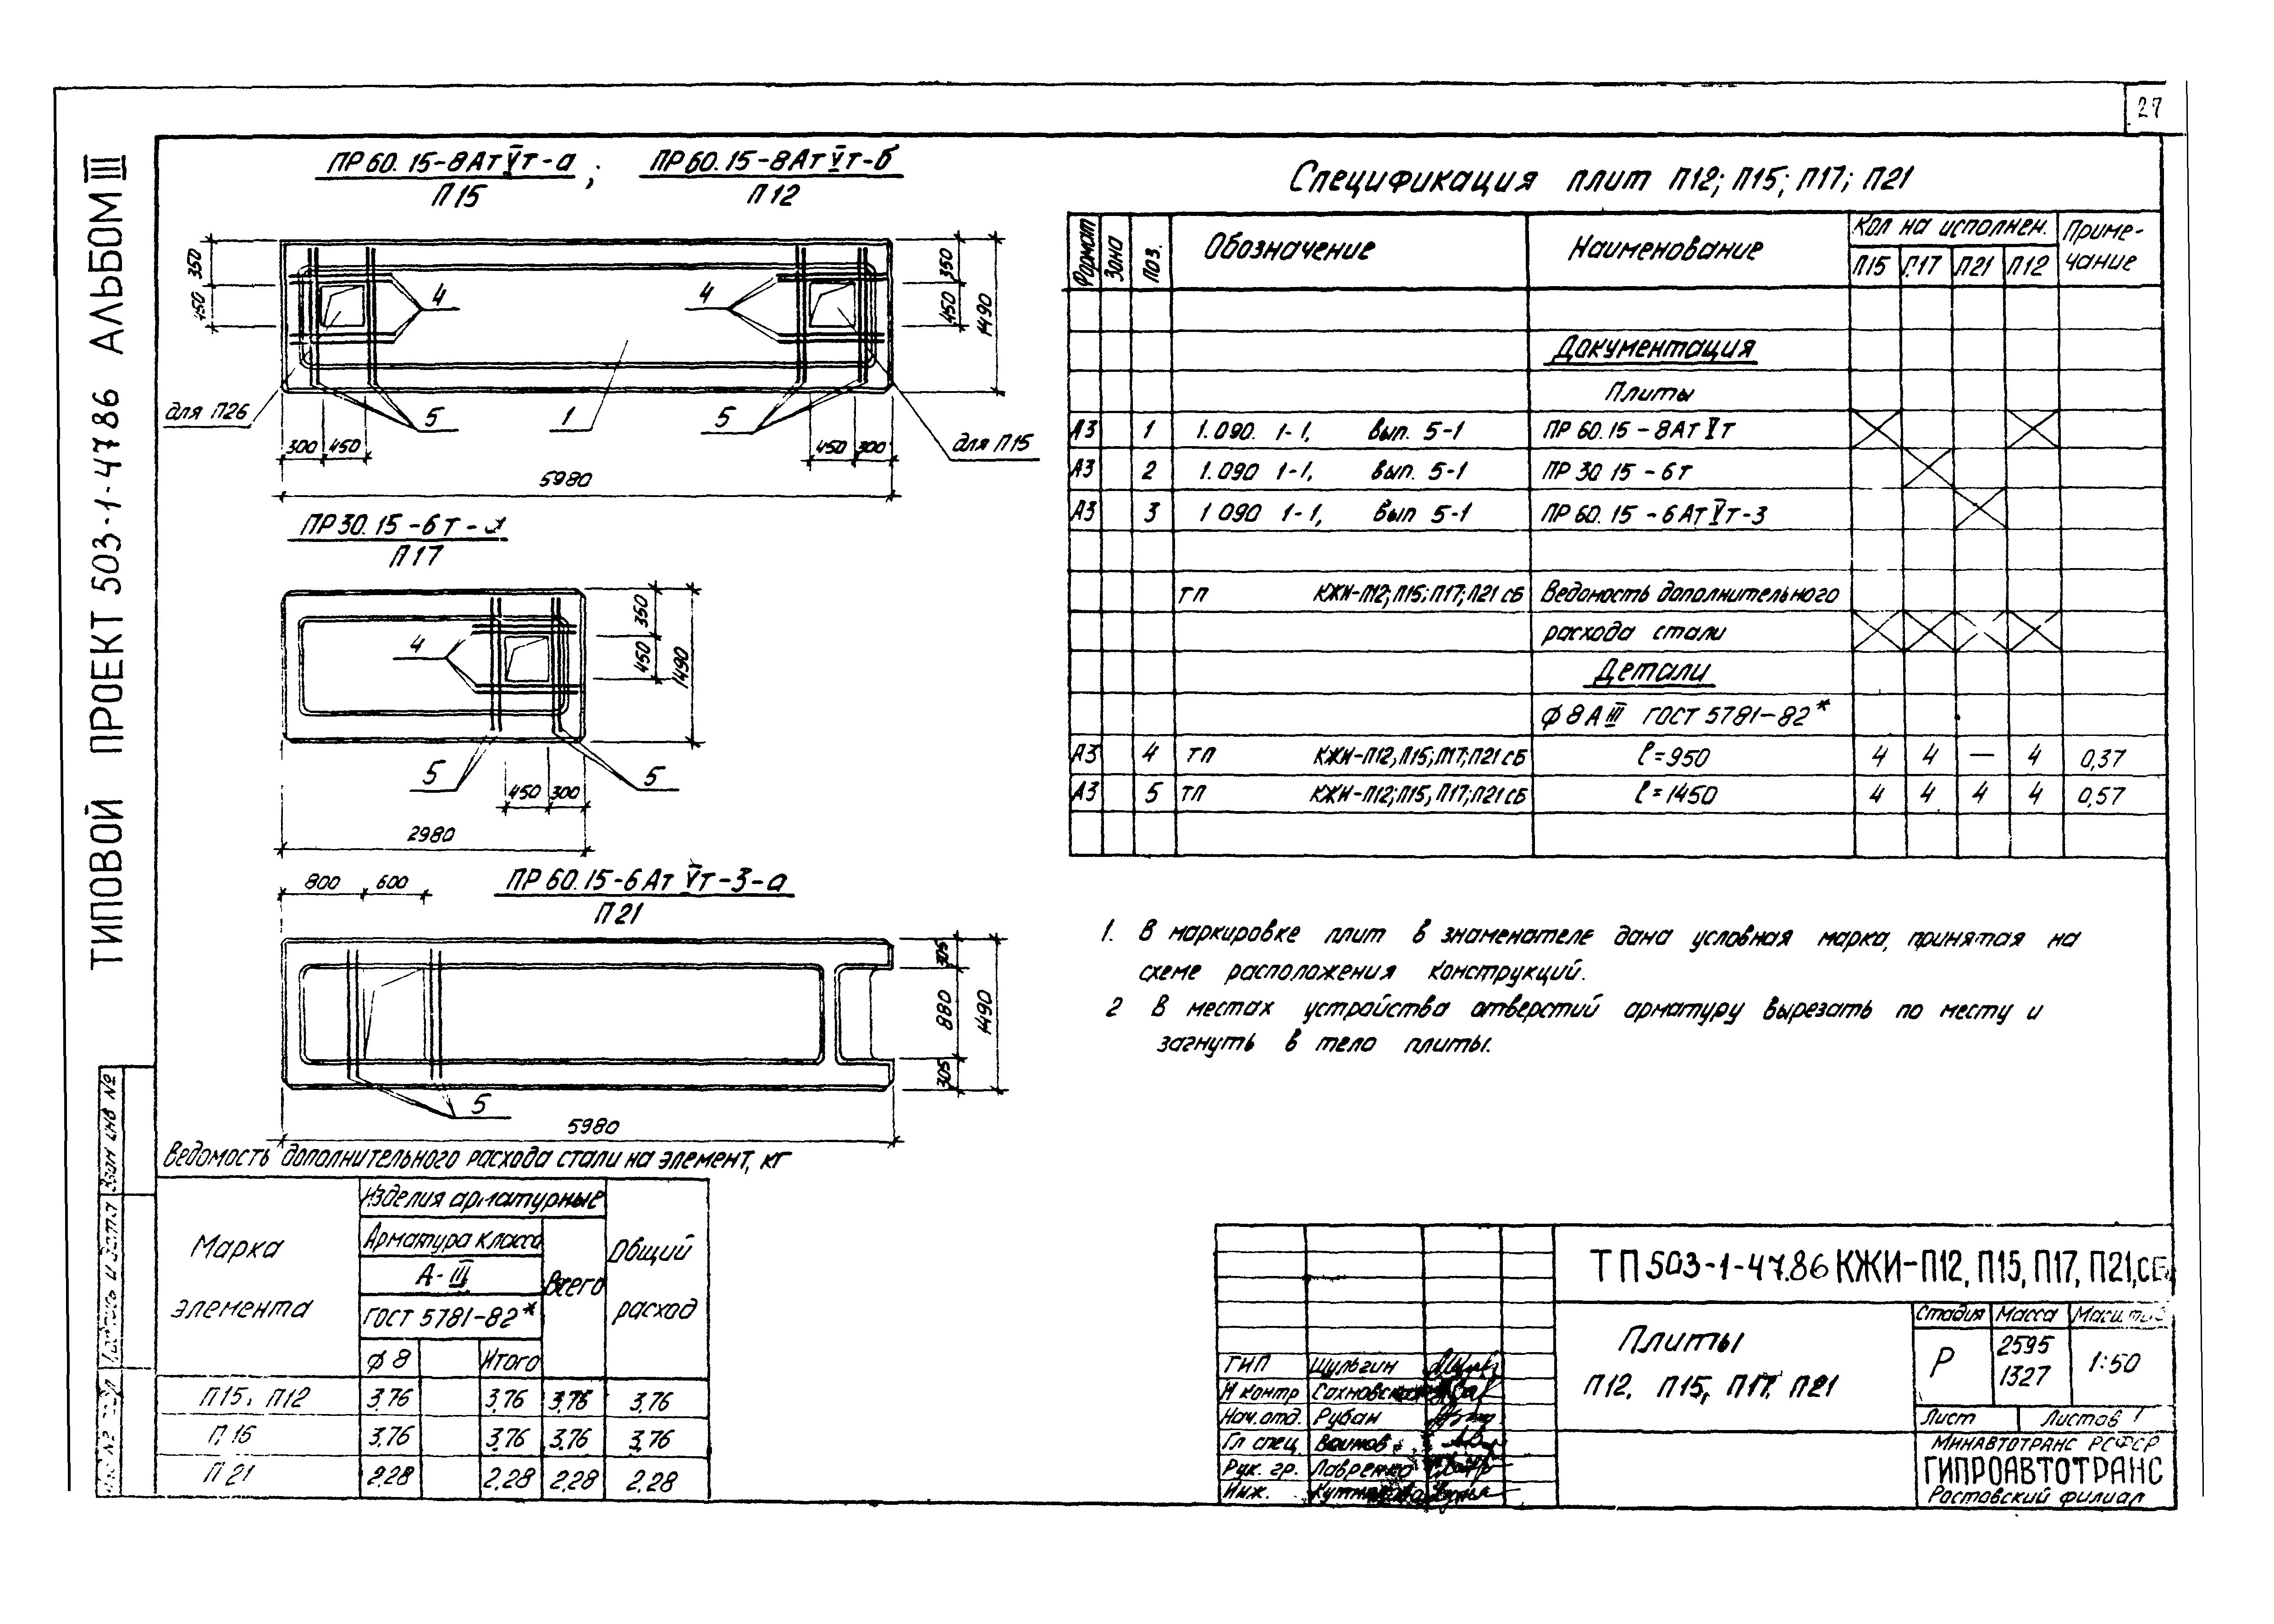 27
ТИПОВОЙ ПРОЕКТ 503-1-4786 АЛЬБОМ III
ПР 60.15-8АтVт-а ; ПР 60.15-8АтVт-б
П15 П12
350
450
4
4
350
450
1490
для П26
5
1
5
для П15
300 450
450 300
5980
ПР 30.15-6т-а
П17
4
350
450
1490
5
5
450 300
2980
800 600
ПР 60.15-6АтVт-3-а
П21
305
880
305
1490
5
5980
Спецификация плит П12; П15; П17; П21
Формат Зона Поз. Обозначение Наименование Кол на исполнен. Приме-
чание
П15 П17 П21 П12
Документация
Плиты
А3 1 1.090. 1-1, вып. 5-1 ПР 60.15-8АтVт
А3 2 1.090 1-1, вып. 5-1 ПР 30 15-6т
А3 3 1 090 1-1, вып 5-1 ПР 60.15-6АтVт-3
ТП КЖИ-П12; П15; П17; П21 СБ Ведомость дополнительного
расхода стали
Детали
ф 8 А III ГОСТ 5781-82*
А3 4 ТП КЖИ-П12, П15; П17; П21 СБ ℓ=950 4 4 — 4 0,37
А3 5 ТП КЖИ-П12; П15, П17; П21 СБ ℓ=1450 4 4 4 4 0,57
1. В маркировке плит в знаменателе дана условная марка, принятая на
схеме расположения конструкций.
2 В местах устройства отверстий арматуру вырезать по месту и
загнуть в тело плиты.
Ведомость дополнительного расхода стали на элемент, кг
Марка
элемента
Изделия арматурные
Арматура класса
А-III
ГОСТ 5781-82*
ф 8 Итого
Всего
Общий
расход
П15, П12 3,76 3,76 3,76 3,76
П 16 3,76 3,76 3,76 3,76
П 21 2,28 2,28 2,28 2,28
Взам инв №
ТП 503-1-47.86 КЖИ-П12, П15, П17, П21, СБ
Плиты
П12, П15, П17, П21
Стадия Масса Масштаб
Р 2595
1327
1:50
Лист Листов 1
ГИП Шульгин
Н контр
Нач. отд. Рубан
Гл спец.
Рук. гр. Лавренко
Инж.
МИНАВТОТРАНС РСФСР
ГИПРОАВТОТРАНС
Ростовский филиал